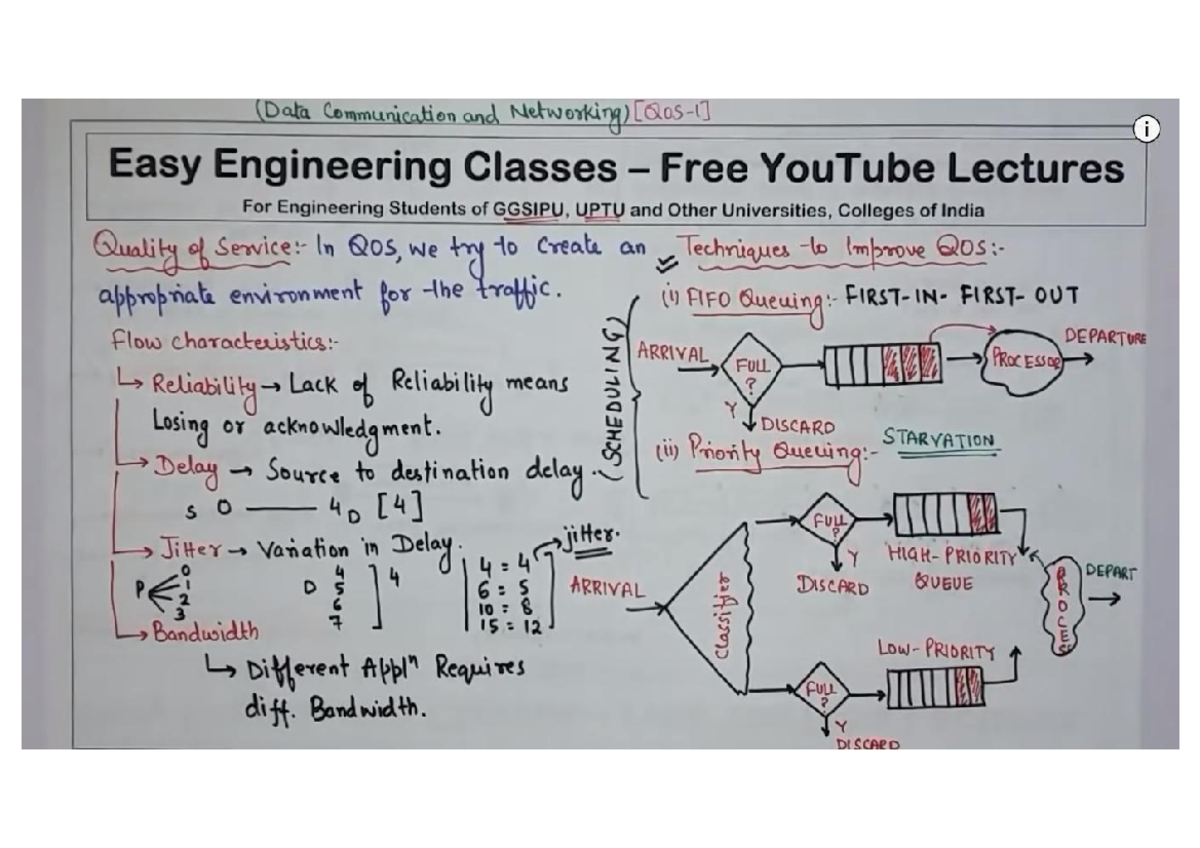 (Data Communication and Networking) [QOS-1]
i
Easy Engineering Classes – Free YouTube Lectures
For Engineering Students of GGSIPU, UPTU and Other Universities, Colleges of India
Quality of Service:- In QOS, we try to Create an
appropriate environment for the traffic.
Flow characteristics:-
Reliability → Lack of Reliability means
Losing or acknowledgment.
Delay → Source to destination delay.
S 0 —— 4 D [4]
Jitter → Variation in Delay.
P 0 1 2 3
D 4 5 6 7 ] 4
4 = 4 → jitter.
6 = 5
10 = 8
15 = 12
Bandwidth
↳ Different Applⁿ Requires
diff. Bandwidth.
Techniques to Improve QOS:-
(SCHEDULING)
(i) FIFO Queuing:- FIRST-IN- FIRST-OUT
ARRIVAL
FULL ?
PROCESSOR
DEPARTURE
Y
DISCARD
(ii) Priority Queuing:- STARVATION
ARRIVAL
Classifier
FULL ?
Y
DISCARD
HIGH-PRIORITY
QUEUE
PROCES
DEPART
LOW-PRIORITY
FULL ?
Y
DISCARD